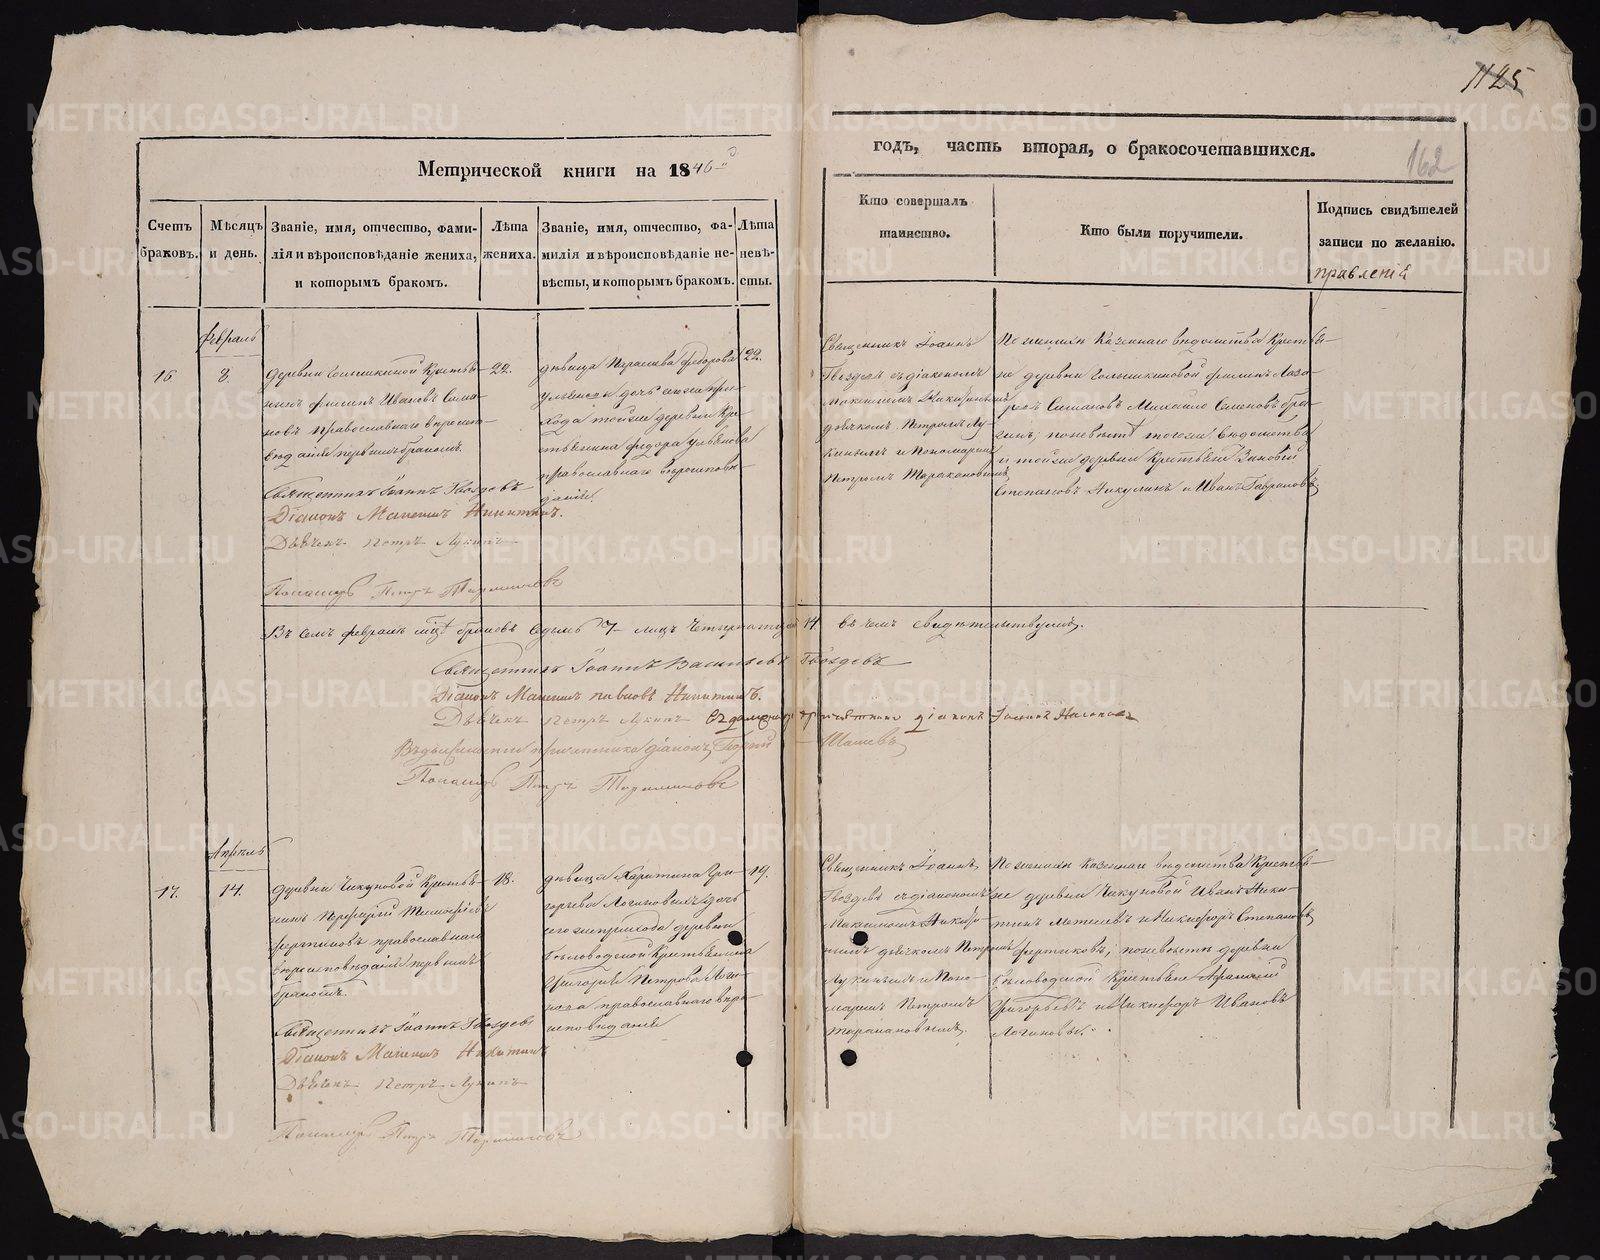 1125
162
Метрической книги на 1846
годъ, часть вторая, о бракосочетавшихся.
Счетъ браковъ.
Мѣсяцъ и день.
Званіе, имя, отчество, фами-
лія и вѣроисповѣданіе жениха,
и которымъ бракомъ.
Лѣта жениха.
Званіе, имя, отчество, фа-
милія и вѣроисповѣданіе не-
вѣсты, и которымъ бракомъ.
Лѣта невѣ-
сты.
Кто совершалъ
таинство.
Кто были поручители.
Подпись свидѣтелей
записи по желанію.
правленія
февраль
16
8.
деревни крестья-
нинъ филипъ Ивановъ Сима-
новъ православнаго вѣроиспо-
вѣданія первымъ бракомъ.
22.
дѣвица Параскева федорова
дочь
хода тойже деревни кре-
стьянина федора
православнаго вѣроисповѣ-
данія.
22.
Священникъ Іоаннъ
Гвоздевъ съ діакономъ
Максимомъ Никитинымъ
дьячкомъ Петромъ Лу-
кинымъ и Пономаремъ
Петромъ Таракановымъ
По женихѣ Казеннаго вѣдомства Крестья-
не деревни
Симановъ Михайло Семеновъ
по невѣстѣ тогоже вѣдомства
и тойже деревни Крестьяне Зиновій
Степановъ Никулинъ и Иванъ
Священникъ Іоаннъ Гвоздевъ
Діаконъ Максимъ Никитинъ.
Дьячекъ Петръ Лукинъ
Пономарь Петръ Таракановъ
Въ семъ февралѣ браковъ седмь 7 лицъ четырнатцать 14 въ чемъ свидѣтельствуемъ.
Священникъ Іоаннъ Васильевъ Гвоздевъ
Діаконъ Максимъ Никитинъ.
Дьячекъ Петръ Лукинъ діаконъ
діаконъ
Пономарь Петръ Таракановъ
Апрѣль
17.
14.
деревни Чикуновой Крестья-
нинъ Терентій Тимофѣевъ
фертиковъ православнаго
вѣроисповѣданія первымъ
бракомъ.
18.
дѣвица Харитина Гри-
горьева Логиновыхъ дочь
сегоже прихода деревни
Бѣловодской Крестьянина
Григорья Петрова Логи-
нова православнаго вѣро-
исповѣданія
19.
Священникъ Іоаннъ
Гвоздевъ съ діакономъ
Максимомъ Никити-
нымъ дьячкомъ Петромъ
Лукинымъ и Поно-
маремъ Петромъ
Таракановымъ.
По женихѣ Казеннаго вѣдомства Крестья-
не деревни Чикуновой Иванъ Ники-
тинъ и Никифоръ Степановъ
фертиковъ; по невѣстѣ деревни
Бѣловодской Крестьяне Афанасій
Григорьевъ и Никифоръ Ивановъ
Логиновы.
Священникъ Іоаннъ Гвоздевъ
Діаконъ Максимъ Никитинъ
Дьячекъ Петръ Лукинъ
Пономарь Петръ Таракановъ
METRIKI.GASO-URAL.RU